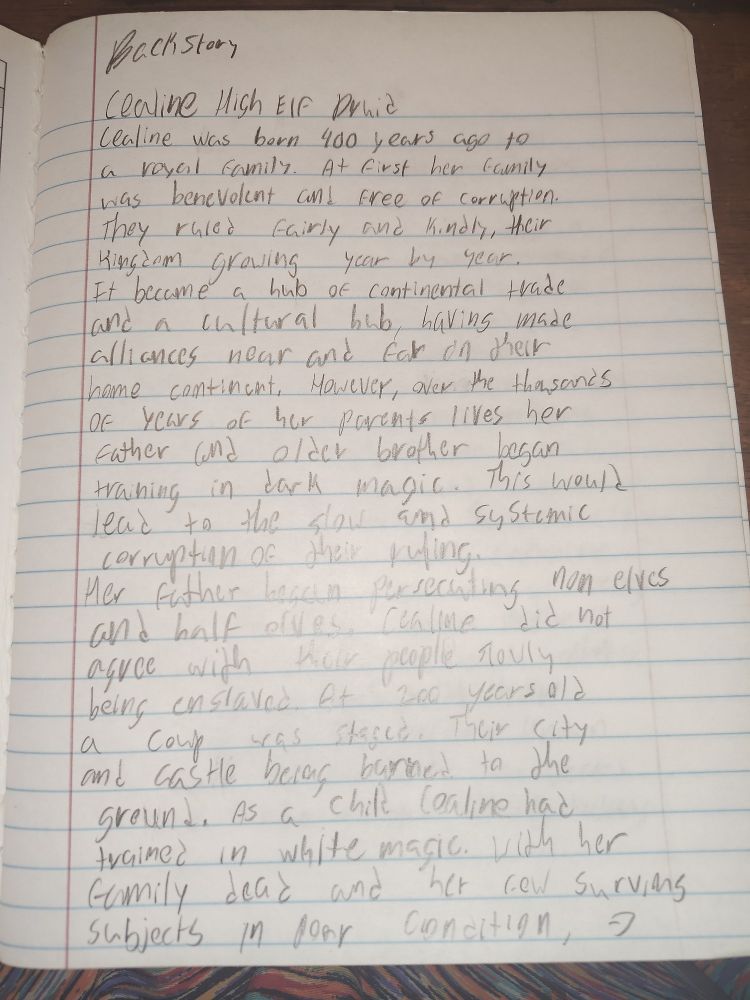 Backstory
Cealine High Elf Druid
Cealine was born 400 years ago to
a royal family. At first her family
was benevolent and free of corruption.
They ruled fairly and kindly, their
kingdom growing year by year.
It became a hub of continental trade
and a cultural hub, having made
alliances near and far on their
home continent. However, over the thousands
of years of her parents lives her
father and older brother began
training in dark magic. This would
lead to the slow and systemic
corruption of their ruling.
Her father began persecuting non elves
and half elves. Cealine did not
agree with their people slowly
being enslaved. At 200 years old
a coup was staged. Their city
and castle being burned to the
ground. As a child Cealine had
trained in white magic. With her
family dead and her few survins
subjects in poor condition, →